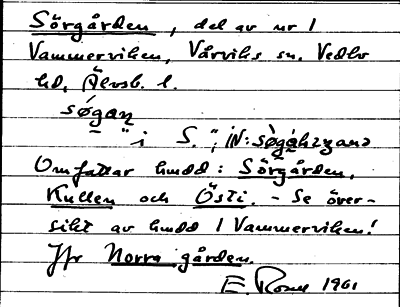 Sörgården, del av nr 1
Vammerviken, Vårviks sn. Vedbo
hd, Älvsb. l.
søgaṇ
"i S.";
Omfattar hmdd: Sörgården,
Kullen och Östi. - Se över-
sikt av hmdd / Vammerviken!
Jfr Norra gården.
E. 1961